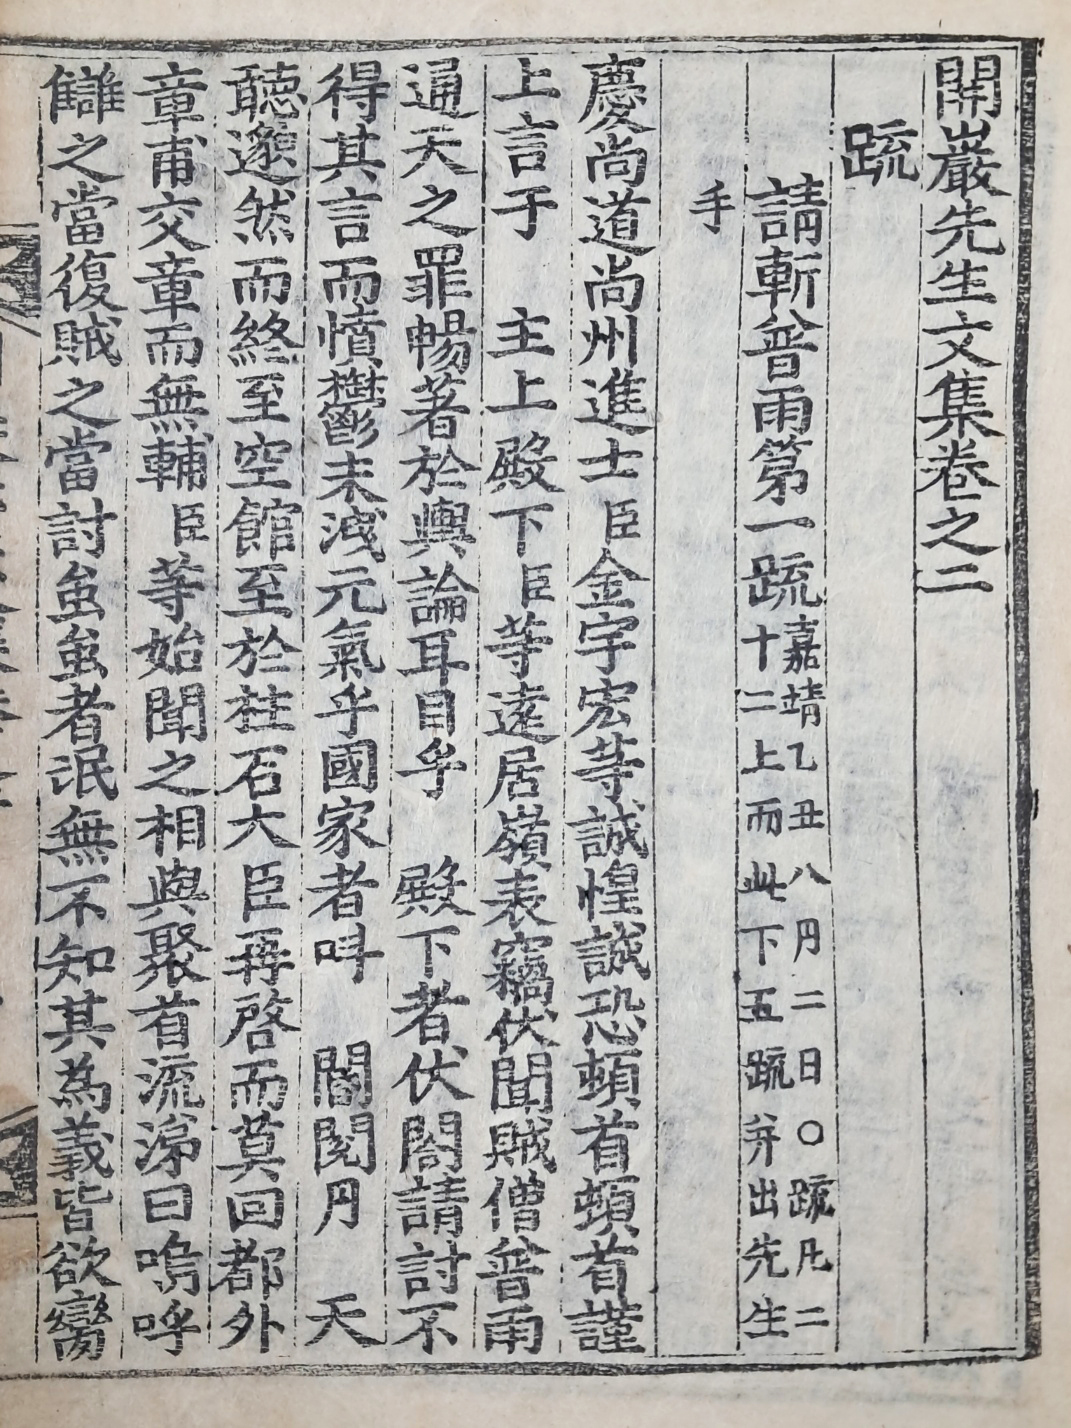 開巖先生文集卷之二
疏
請斬普雨第一疏 嘉靖乙丑八月二日○疏凡二十二上而此下五疏并出先生
手
慶尚道尚州進士臣金宇宏等誠惶誠恐頓首頓首謹
上言于 主上殿下臣等遠居嶺表竊伏聞賊僧普雨
通天之罪暢著於輿論耳目乎 殿下者伏閤請討不
得其言而憤鬱未洩元氣乎國家者叫 閽閱月 天
聽邈然而終至空館至於柱石大臣再啓而莫回都外
章甫交章而無輔臣等始聞之相與聚首流涕曰嗚呼
讎之當復賊之當討蚩蚩者氓無不知其爲義皆欲臠